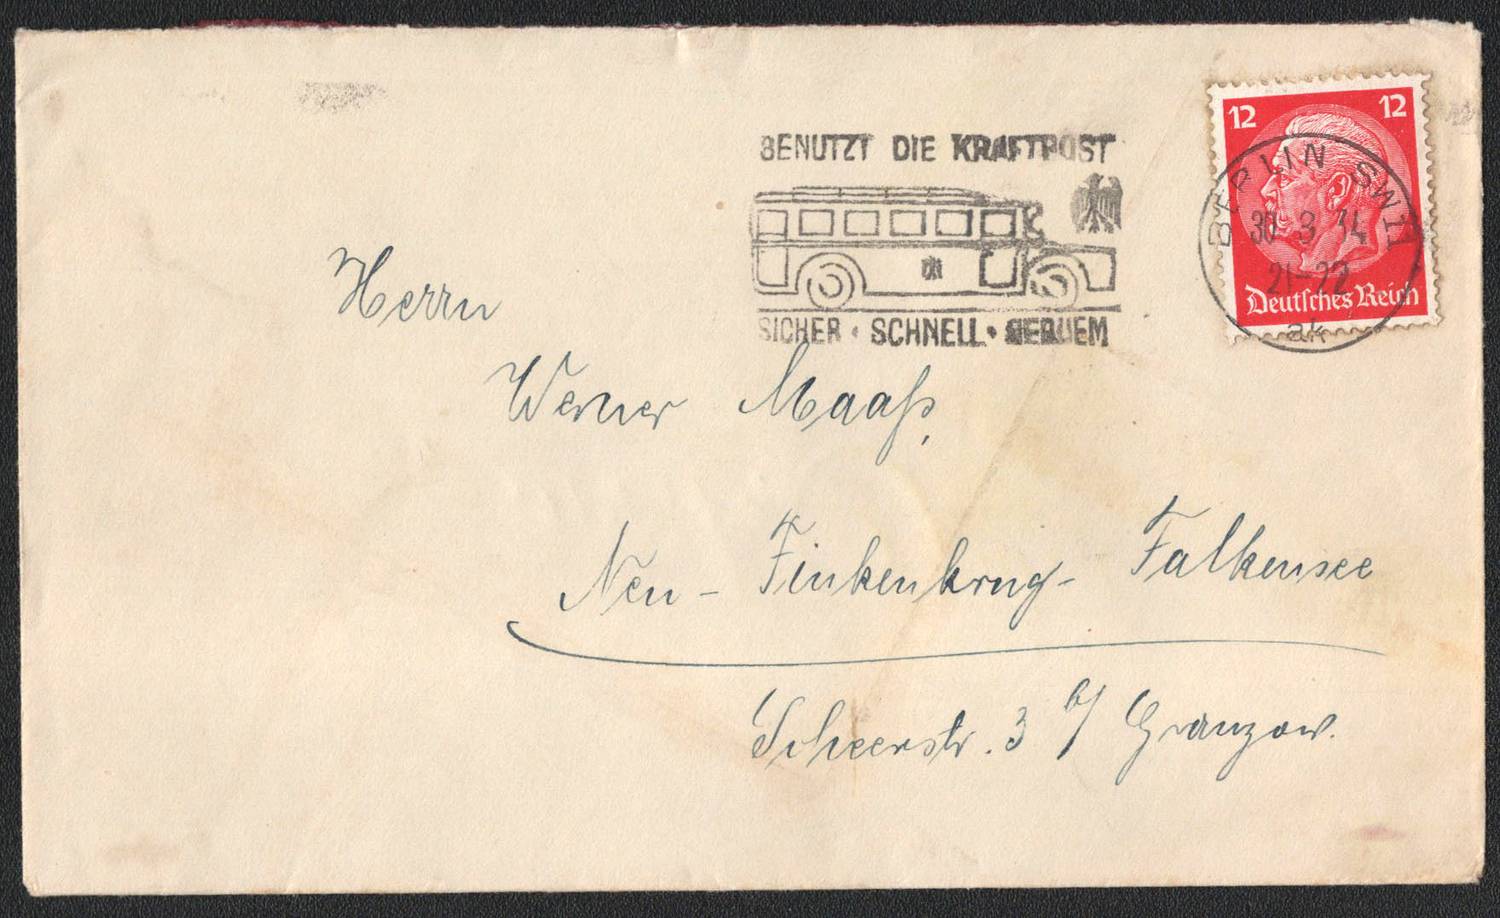 BENUTZT DIE KRAFTPOST
SICHER • SCHNELL • BEQUEM
12 12
Deutsches Reich
BERLIN SW11
21-22
ak
Herrn
Werner Maaß,
Neu - Finkenkrug - Falkensee
Scheerstr. 3 b/ Granzow.